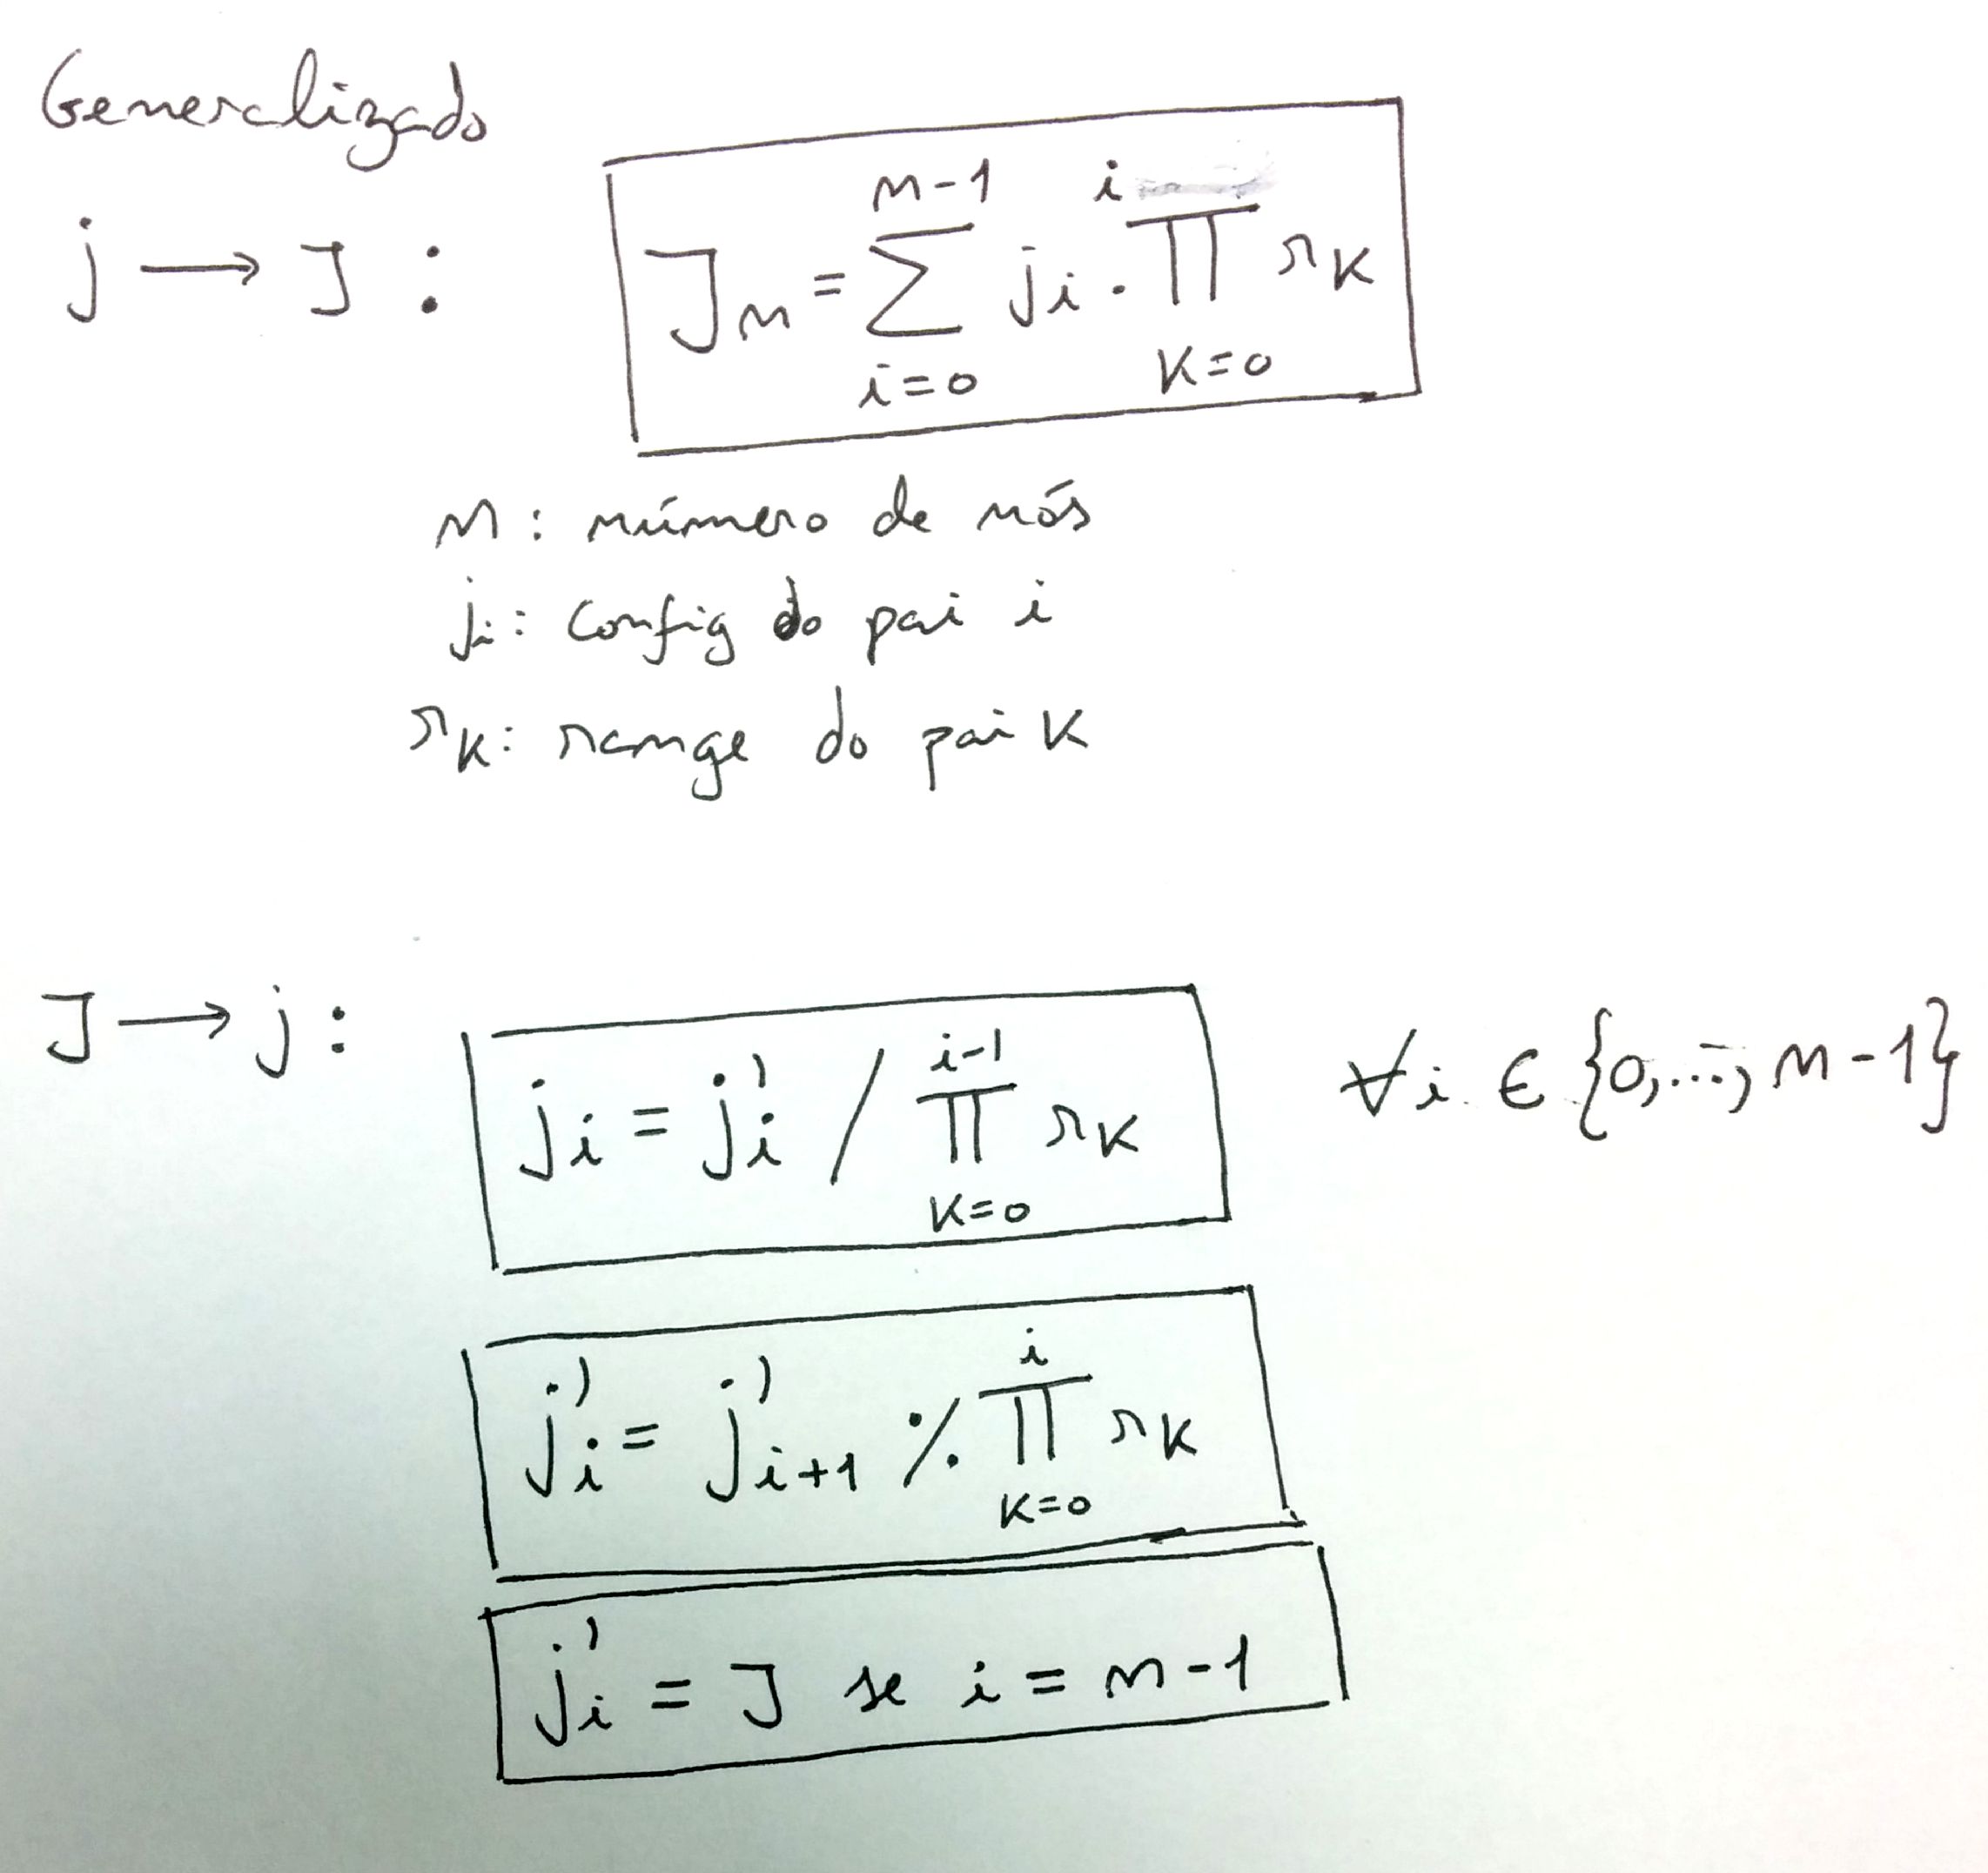 Generalizado
j → J : J_n = Σ_{i=0}^{n-1} j_i · ∏_{k=0}^{i} r_k
n : número de nós
j_i : config do pai i
r_k : range do pai k
J → j : j_i = j'_i / ∏_{k=0}^{i-1} r_k ∀i ∈ {0,...,n-1}
j'_i = j'_{i+1} % ∏_{k=0}^{i} r_k
j'_i = J se i = n-1